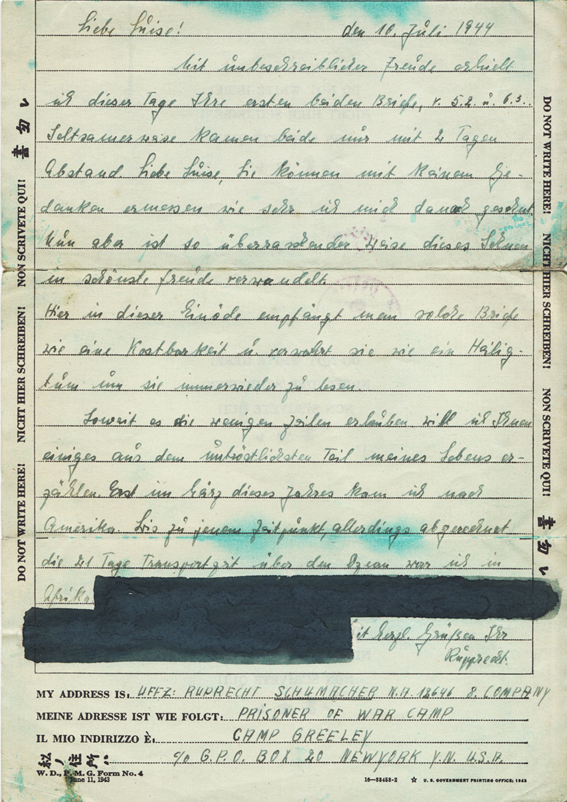 Liebe Luise! den 16. Juli 1944
Mit unbeschreiblicher Freude erhielt
ich dieser Tage Ihre ersten beiden Briefe, v. 5.2. u. 6.3..
Seltsamerweise kamen beide nur mit 2 Tagen
Abstand. Liebe Luise, Sie können mit keinem Ge-
danken ermessen wie sehr ich mich danach gesehnt.
Nun aber ist so überraschender Weise dieses Sehnen
in schönste Freude verwandelt.
Hier in dieser Einöde empfängt man solche Briefe
wie eine Kostbarkeit u. verwahrt sie wie ein Heilig-
tum um sie immerwieder zu lesen.
Soweit es die wenigen Zeilen erlauben will ich Ihnen
einiges aus dem untröstlichsten Teil meines Lebens er-
zählen. Erst im März dieses Jahres kam ich nach
Amerika. Bis zu jenem Zeitpunkt, allerdings abgerechnet
die 21 Tage Transportzeit über den Ozean war ich in
Afrika
it herzl. Grüßen Ihr
Rupprecht.
DO NOT WRITE HERE! NICHT HIER SCHREIBEN! NON SCRIVETE QUI!
DO NOT WRITE HERE! NICHT HIER SCHREIBEN! NON SCRIVETE QUI!
MY ADDRESS IS: UFFZ: RUPRECHT SCHUMACHER N.A. 12646 8. COMPANY
MEINE ADRESSE IST WIE FOLGT: PRISONER OF WAR CAMP
IL MIO INDIRIZZO È: CAMP GREELEY
私ノ住所: c/o G.P.O. BOX 20 NEWYORK Y.N. U.S.A.
W. D., P. M. G. Form No. 4
June 11, 1943
☆ U. S. GOVERNMENT PRINTING OFFICE: 1943